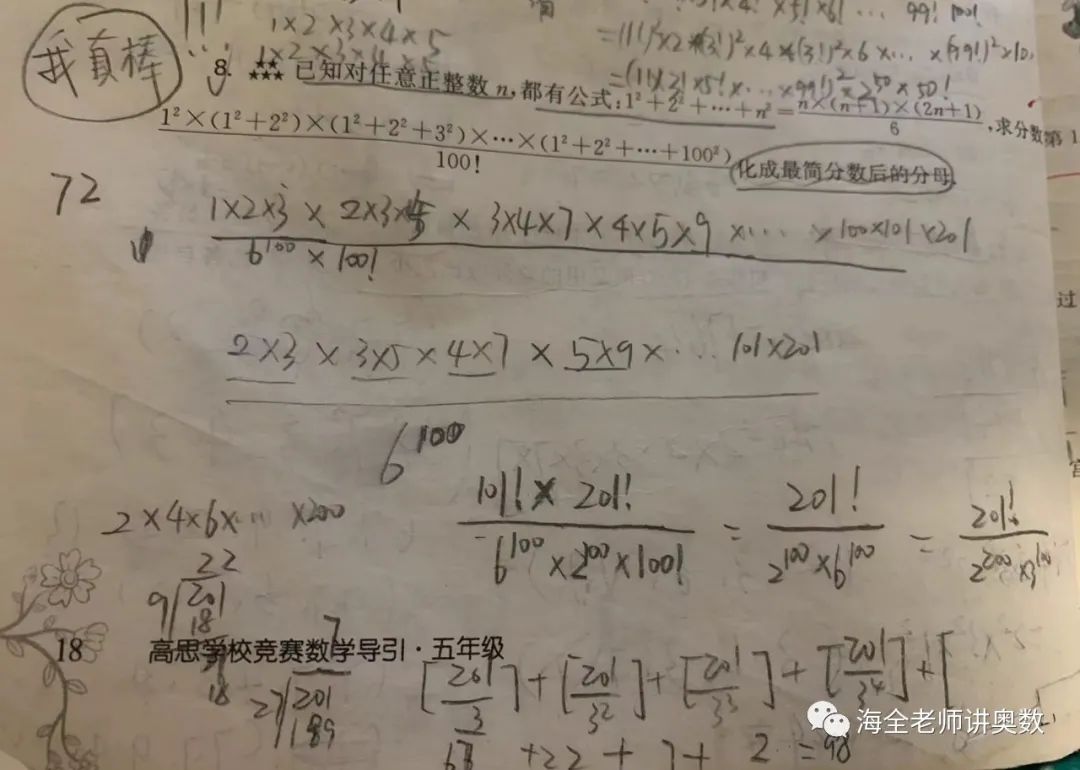 我真棒
1×2×3×4×5
1×2×3×4×5
=(1!)²×2×(3!)²×4×(5!)²×6×…×(99!)²×10
=(1!×3!×5!×…×99!)²×2⁵⁰×50!
8. ★★★★★ 已知对任意正整数 n,都有公式:1²+2²+…+n²=n×(n+1)×(2n+1)/6,求分数第 1
1²×(1²+2²)×(1²+2²+3²)×…×(1²+2²+…+100²)/100! 化成最简分数后的分母
72
1×2×3×2×3×5×3×4×7×4×5×9×…×100×101×201
6¹⁰⁰×100!
2×3×3×5×4×7×5×9×…101×201
6¹⁰⁰
2×4×6×…×200
101!×201!/6¹⁰⁰×2¹⁰⁰×100! = 201!/2¹⁰⁰×6¹⁰⁰ = 201!/2²⁰⁰×3¹⁰⁰
22
9 201
18
18
7
27 201
189
过
18 高思学校竞赛数学导引·五年级
[201/3]+[201/3²]+[201/3³]+[201/3⁴]+[
+22+7+2=98
海全老师讲奥数